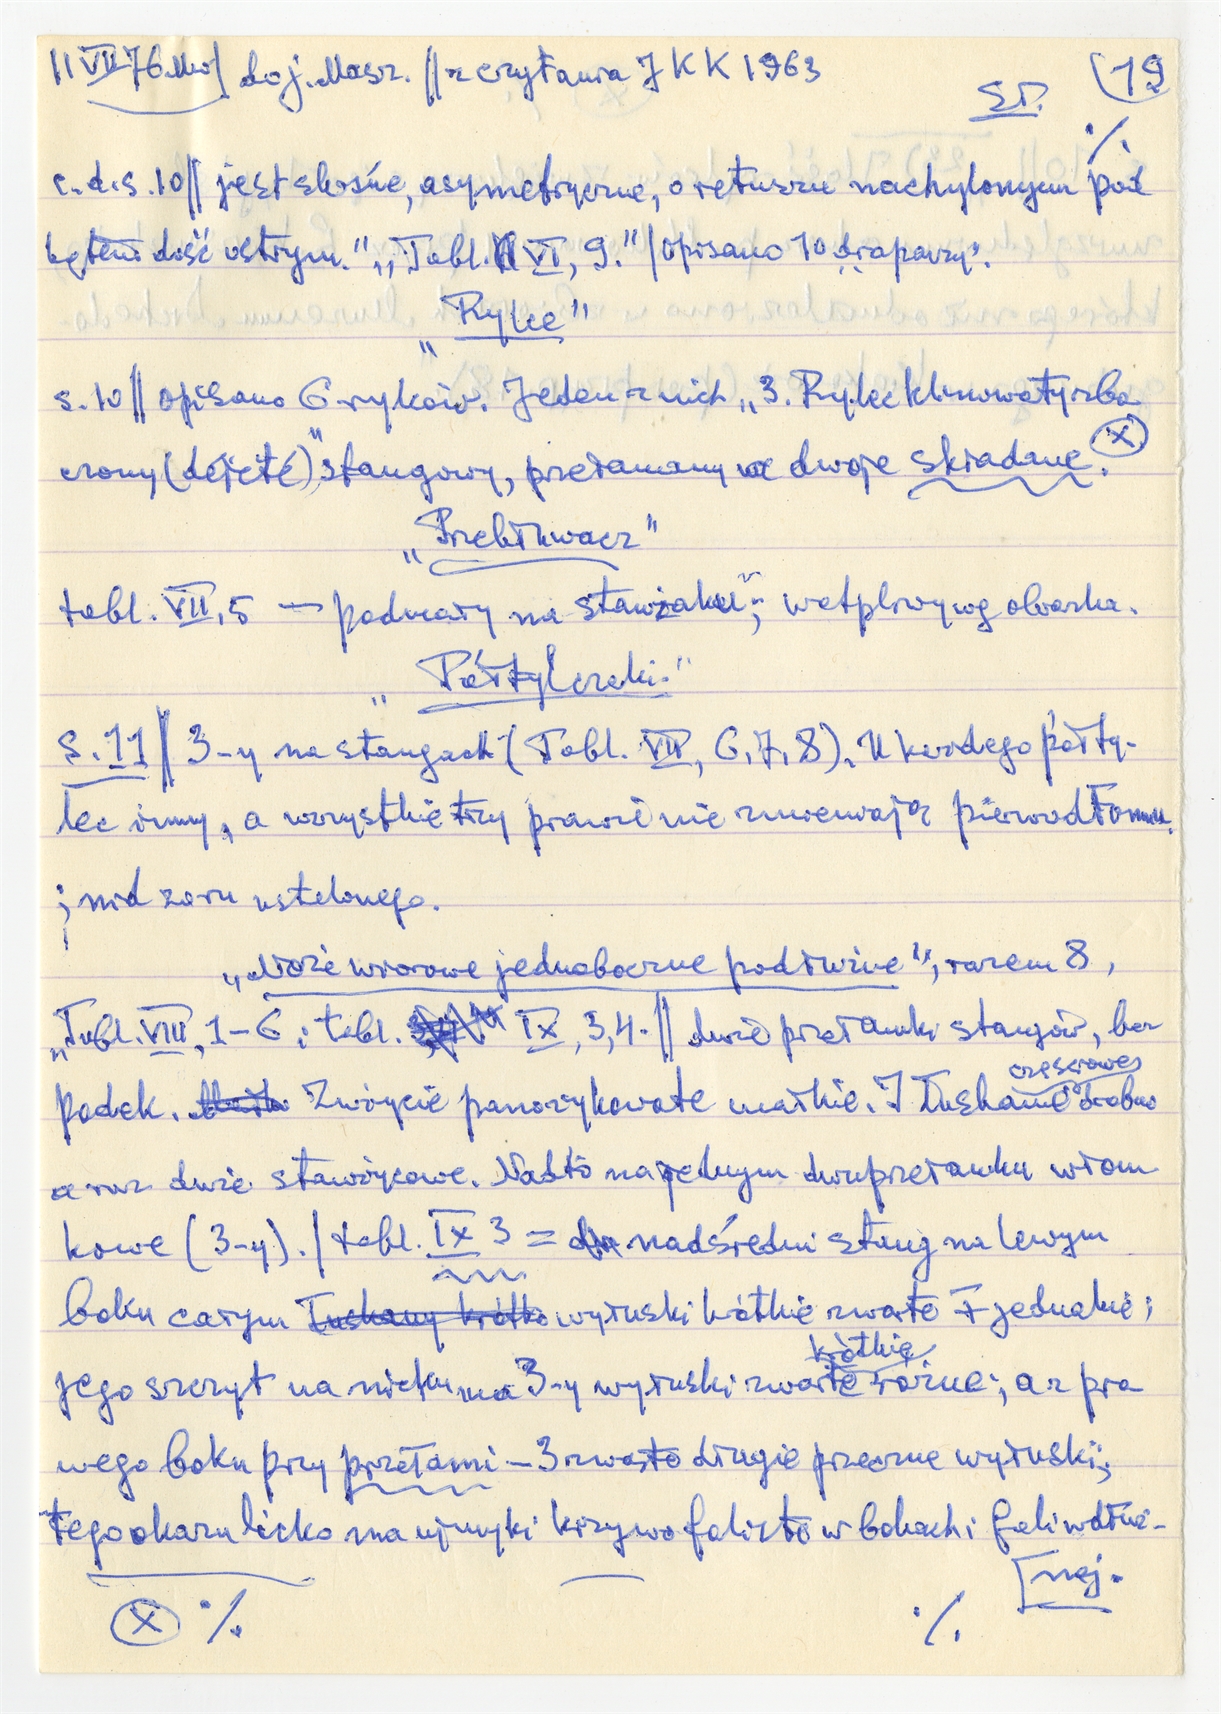 11 VII 76 Mo | doj. Masz. || z czytania JKK 1963
ST. (19
./.
c.d.s. 10 || jest skośne, asymetryczne, o retuszu nachylonym pod
kątem dość ostrym." „Tabl. VI, 9." / opisano 10 „drapaczy".
„Rylce"
s. 10 || opisano 6 rylców. Jeden z nich „3. Rylec klinowaty zba
czony (déjeté)" stangowy, przełamany na dwoje składane. (x)
„Przekłuwacz"
tabl. VII, 5 — podwały na stawiaku"; wątpliwy wg obrazka.
„Półtylczaki."
s. 11 || 3-y na stangach (Tabl. VII, 6, 7, 8). U każdego półty-
lec inny, a wszystkie trzy prawie nie zmieniają pierwodłamu
i nid zaru ustalonego.
„Noże wiórowe jednoboczne podłużne", razem 8,
„Tabl. VIII, 1-6 i tabl. IX, 3, 4. || duże przełamki stangów, bez
podek. Zużycie panozykowate małkie. I łuskanie drobno
częściowe
oraz duże stawiycowe. Nadto na jednym dwuprzełamku włam
kowe (3-y). / tabl. IX 3 = nadśredni stang na lewym
boku całym Łuskany krótko wyłuski krótkie zwarte ∓ jednakie;
krótkie
jego szczyt na nicku ma 3-y wyłuski zwarte różne; a z pra
wego boku przy przełami - 3 zwarto długie przeczne wyłuski;
tego okazu licko ma ujmyki krzywo falisto w bokach i fali wdłuż-
[nej.
(x) ./. ./.